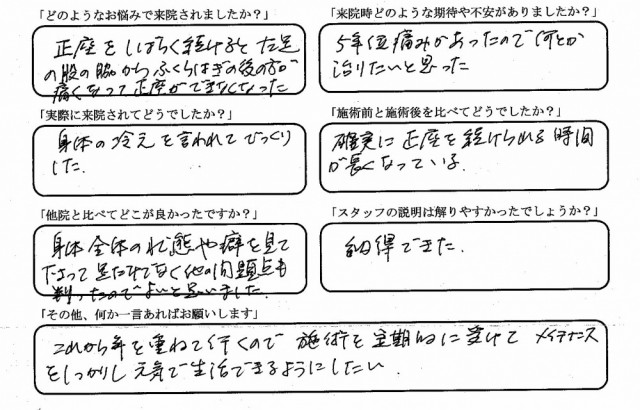 「どのようなお悩みで来院されましたか？」
正座をしばらく続けると左足
の股の脇からふくらはぎの後の方が
痛くなって正座ができなくなった
「来院時どのような期待や不安がありましたか？」
5年位痛みがあったので何とか
治りたいと思った
「実際に来院されてどうでしたか？」
身体の冷えを言われてびっくり
した.
「施術前と施術後を比べてどうでしたか？」
確実に正座を続けられる時間
が長くなっている.
「他院と比べてどこが良かったですか？」
身体全体の状態や癖を見て
下さって足だけでなく他の問題点も
判ったのでよいと思いました.
「スタッフの説明は解りやすかったでしょうか？」
納得できた.
「その他、何か一言あればお願いします」
これから年を重ねて行くので 施術を定期的に受けて メイテナンス
をしっかりし元気で生活できるようにしたい.